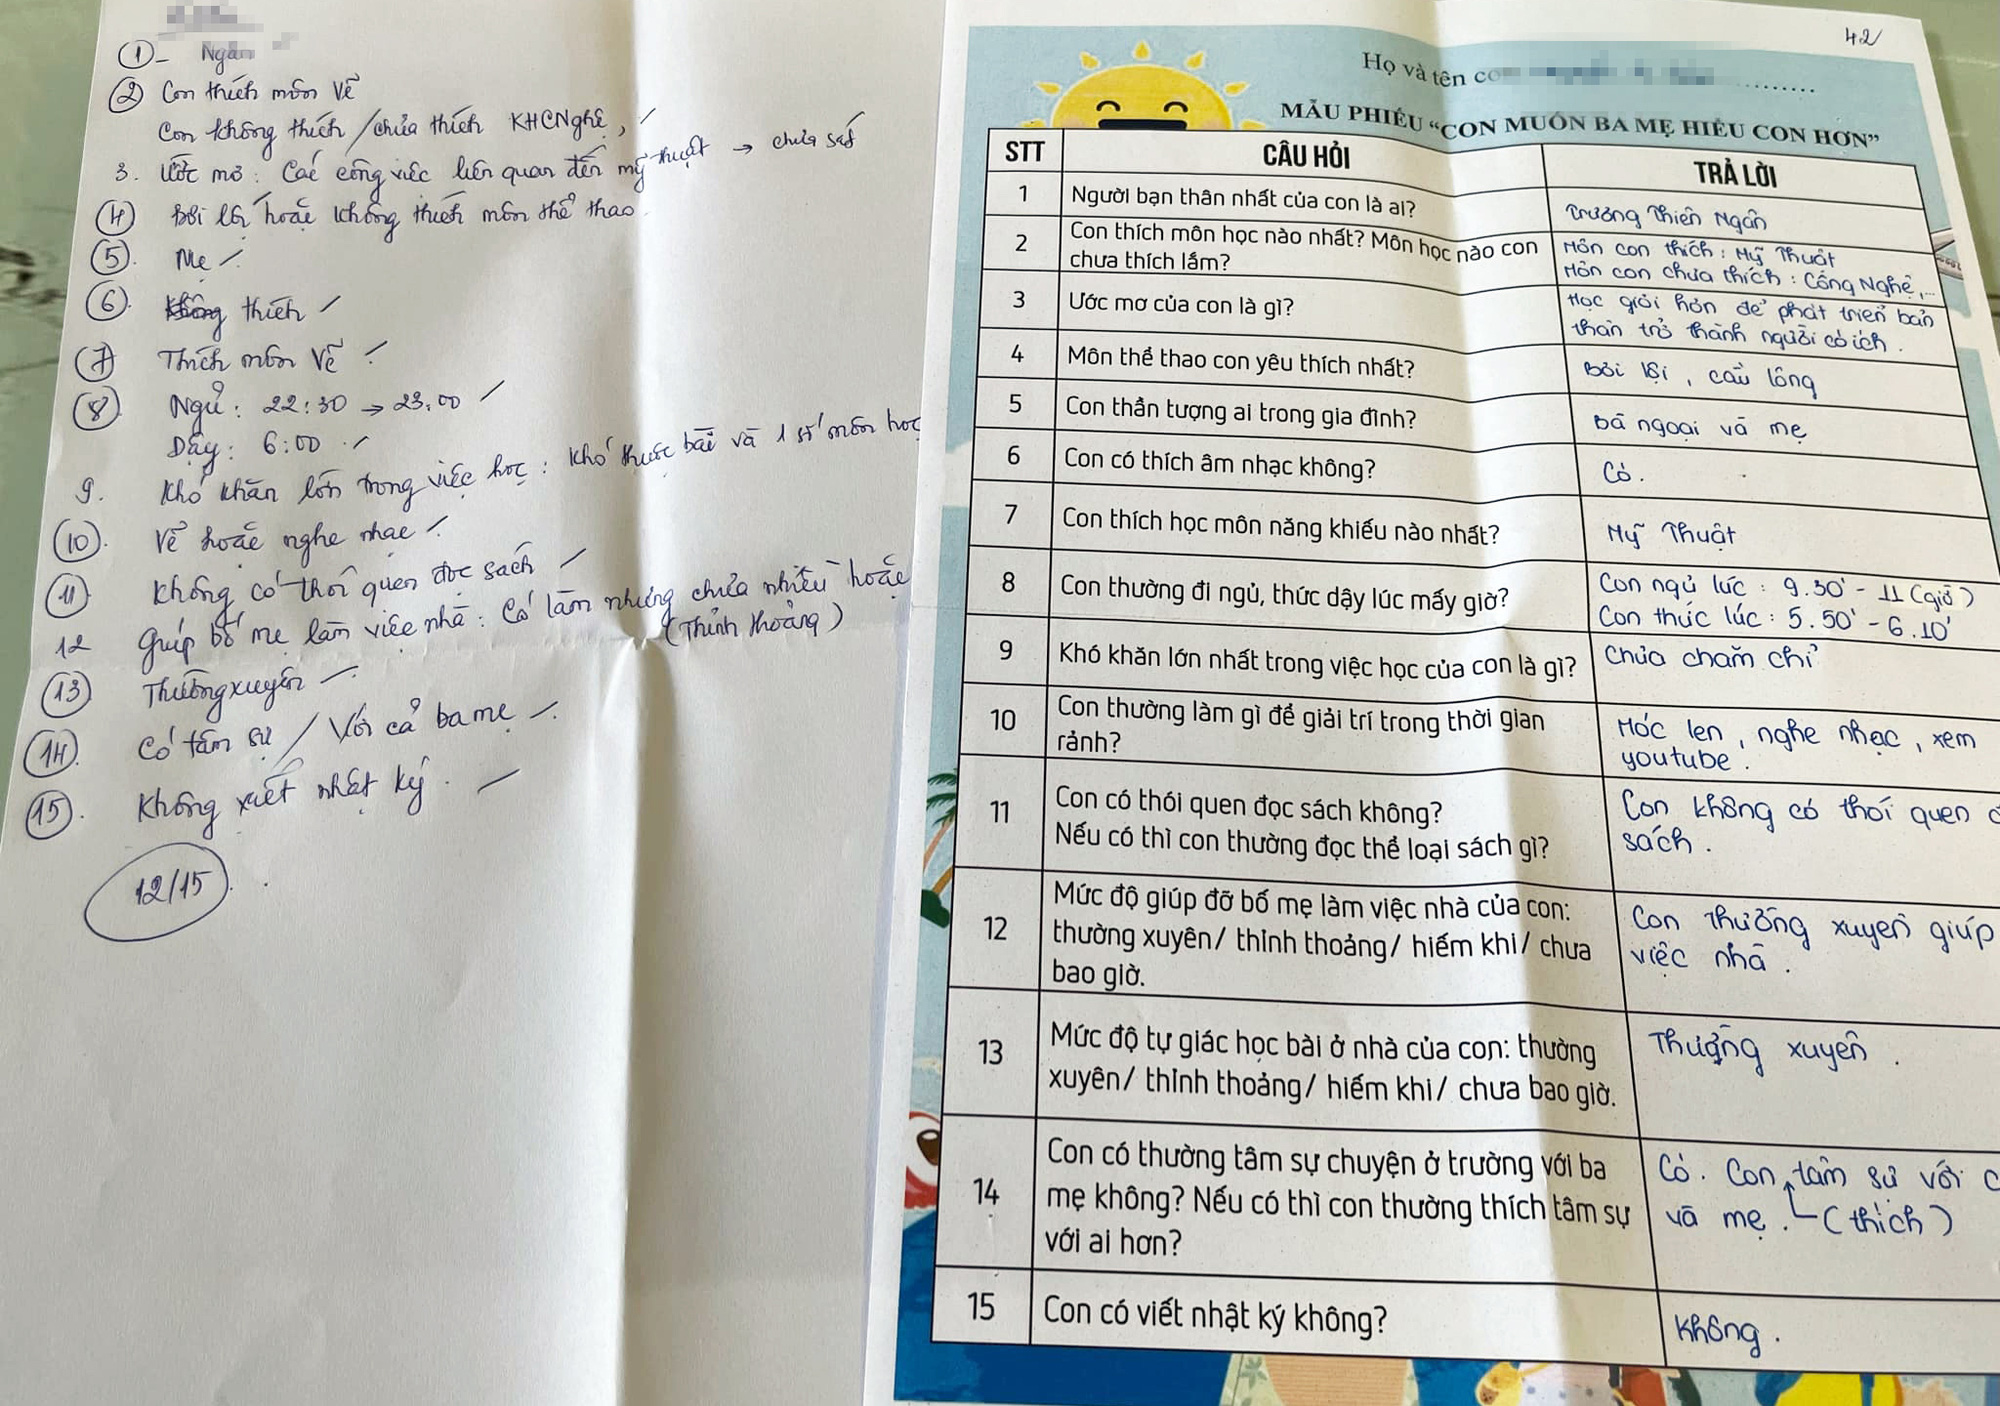 ① - Ngân
② Con thích môn Vẽ
Con không thích / chưa thích KHCNghệ,
3. Ước mơ: Các công việc liên quan đến mỹ thuật → chưa sát
④ Bơi lội hoặc không thích môn thể thao
⑤ Mẹ
⑥ Không thích
⑦ Thích môn Vẽ
⑧ Ngủ: 22:30 → 23:00
Dậy: 6:00
9. Khó khăn lớn trong việc học: Khó thuộc bài và 1 số môn học
⑩ Vẽ hoặc nghe nhạc
⑪ Không có thói quen đọc sách
12 Giúp bố mẹ làm việc nhà: Có làm nhưng chưa nhiều hoặc
(Thỉnh thoảng)
⑬ Thường xuyên
⑭ Có tâm sự / Với cả ba mẹ
⑮ Không viết nhật ký.
12/15
42
Họ và tên co
MẪU PHIẾU “CON MUỐN BA MẸ HIỂU CON HƠN”
STT CÂU HỎI TRẢ LỜI
1 Người bạn thân nhất của con là ai? Trương Thiên Ngân
2 Con thích môn học nào nhất? Môn học nào con Môn con thích: Mỹ Thuật
chưa thích lắm? Môn con chưa thích: Công Nghệ,...
3 Ước mơ của con là gì? Học giỏi hơn để phát triển bản
thân trở thành người có ích.
4 Môn thể thao con yêu thích nhất? Bơi lội, cầu lông
5 Con thần tượng ai trong gia đình? Bà ngoại và mẹ
6 Con có thích âm nhạc không? Có.
7 Con thích học môn năng khiếu nào nhất? Mỹ Thuật
8 Con thường đi ngủ, thức dậy lúc mấy giờ? Con ngủ lúc: 9.30' - 11 (giờ)
Con thức lúc: 5.50' - 6.10'
9 Khó khăn lớn nhất trong việc học của con là gì? Chưa chăm chỉ
10 Con thường làm gì để giải trí trong thời gian Móc len, nghe nhạc, xem
rảnh? youtube.
11 Con có thói quen đọc sách không? Con không có thói quen
Nếu có thì con thường đọc thể loại sách gì? sách.
12 Mức độ giúp đỡ bố mẹ làm việc nhà của con: Con thường xuyên giúp
thường xuyên/ thỉnh thoảng/ hiếm khi/ chưa việc nhà.
bao giờ.
13 Mức độ tự giác học bài ở nhà của con: thường Thường xuyên.
xuyên/ thỉnh thoảng/ hiếm khi/ chưa bao giờ.
14 Con có thường tâm sự chuyện ở trường với ba Có. Con tâm sự với
mẹ không? Nếu có thì con thường thích tâm sự và mẹ. (thích)
với ai hơn?
15 Con có viết nhật ký không? Không.